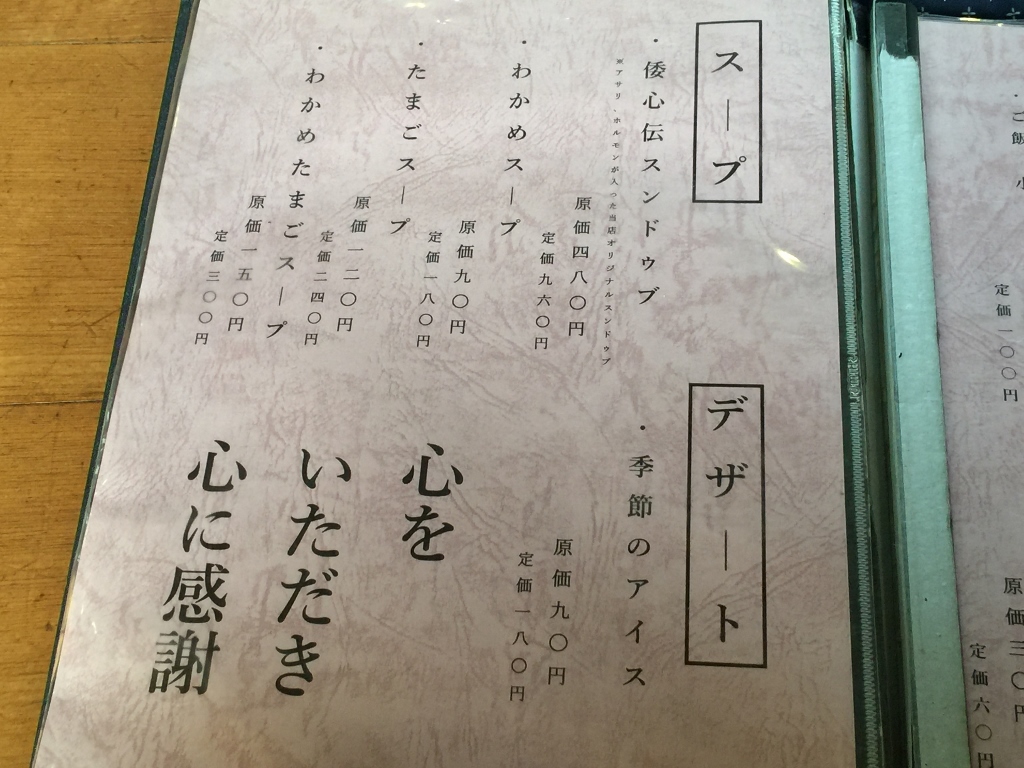 ご飯 小
定価一〇〇円
原価三〇円
定価六〇円
スープ
・倭心伝スンドゥブ
※アサリ、ホルモンが入った当店オリジナルスンドゥブ
原価四八〇円
定価九六〇円
・わかめスープ
原価九〇円
定価一八〇円
・たまごスープ
原価一二〇円
定価二四〇円
・わかめたまごスープ
原価一五〇円
定価三〇〇円
デザート
・季節のアイス
原価九〇円
定価一八〇円
心を
いただき
心に感謝